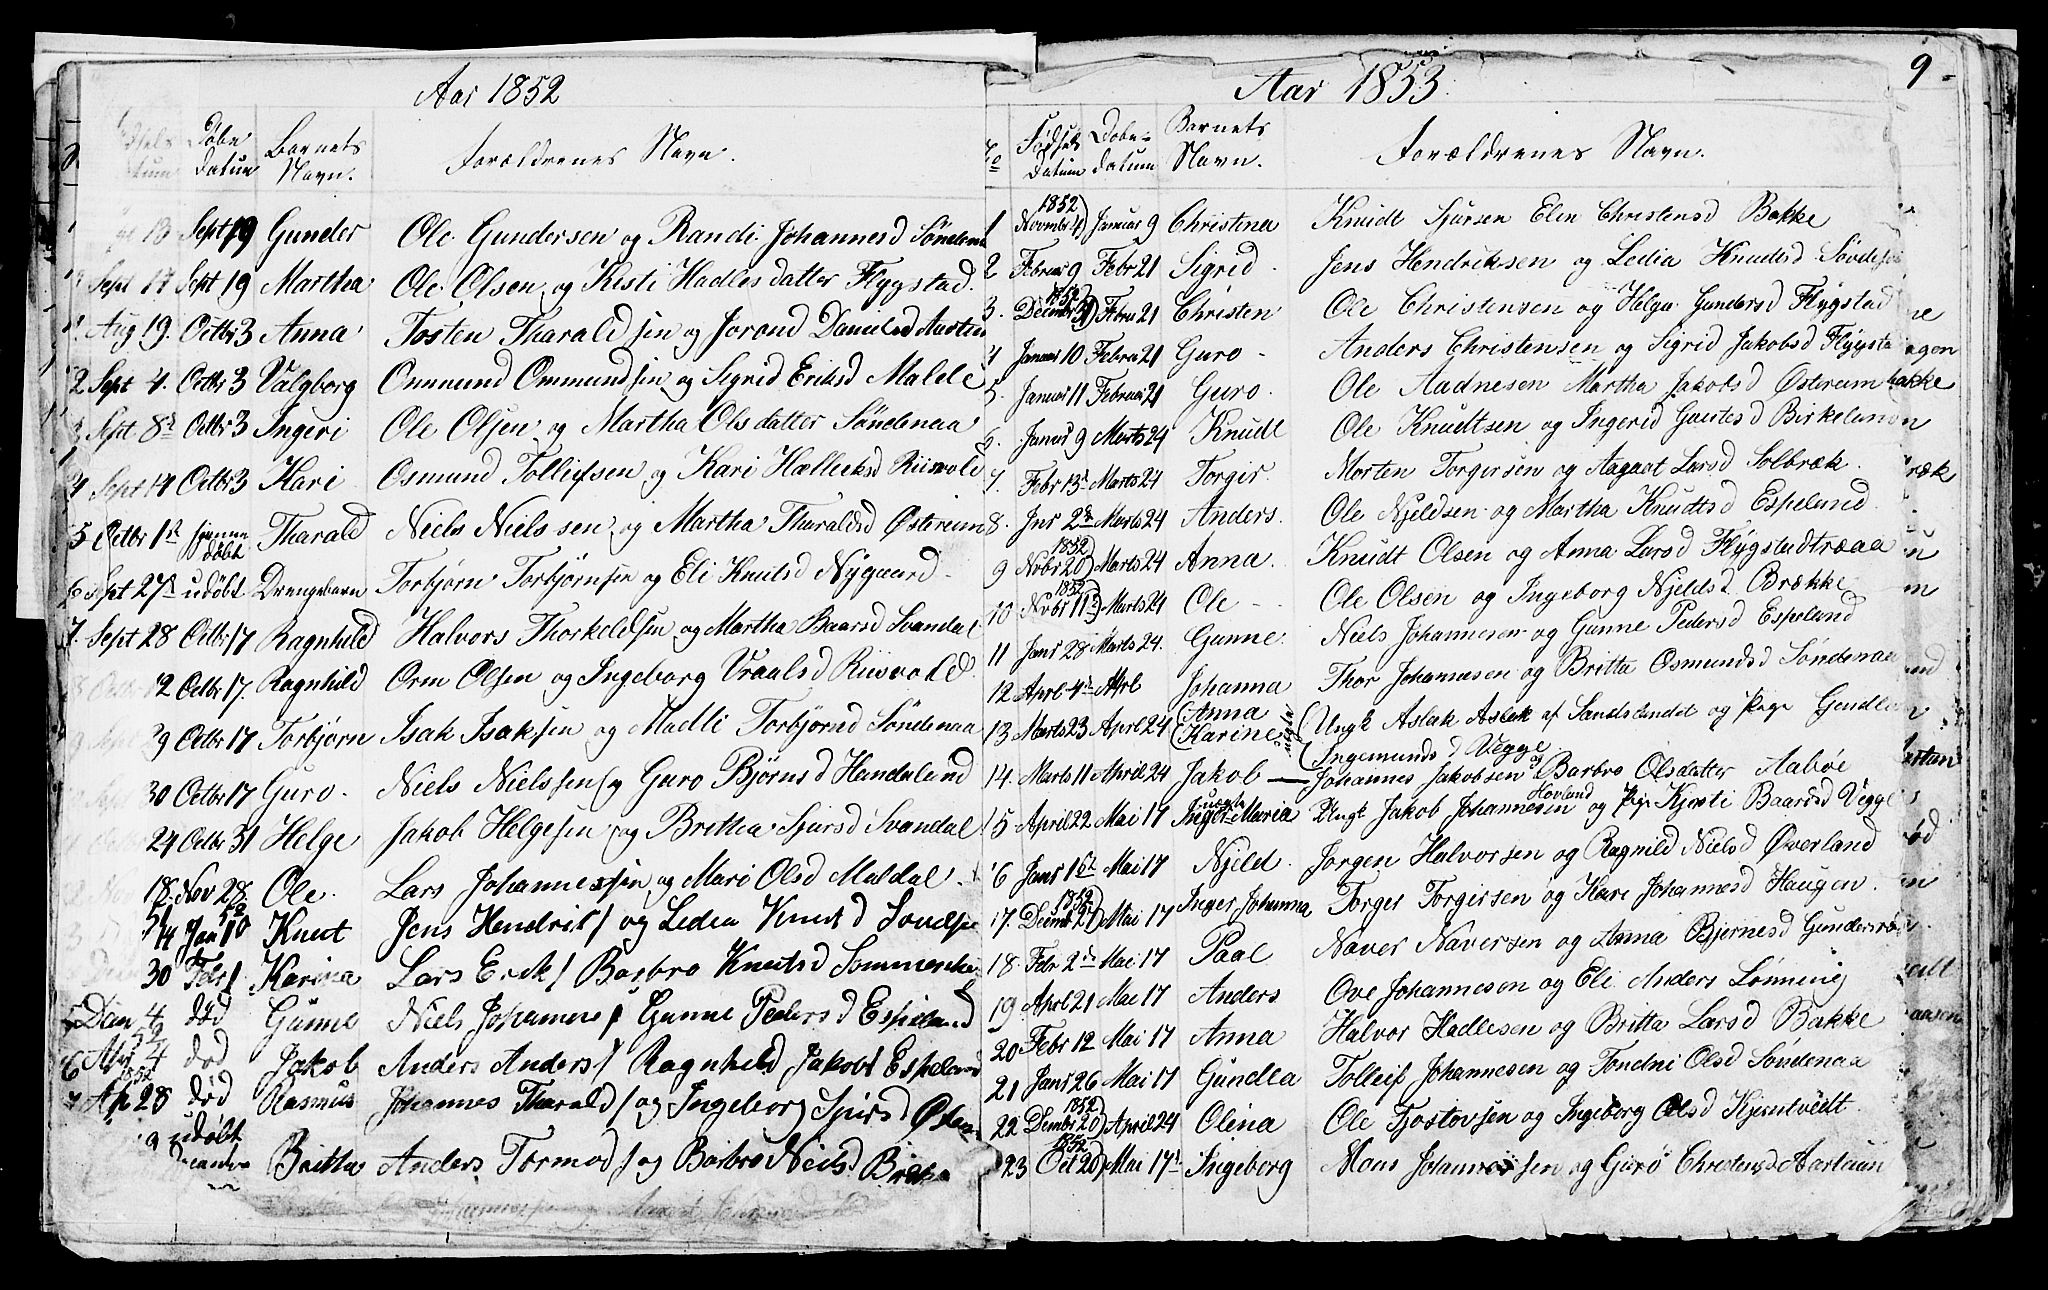 Aar 1852
Døbe Barnets Forældrenes Navn.
datum Navn.
13 Sept 19 Gunder Ole Gundersen og Randi Johannesd
Sept 17 Sept 19 Martha Ole Olsen og Kisti Hadlesdatter Flygstad.
Aug 19. Octbr 3 Anna Tosten Tharaldsen og Jorond Danielsd
2 Sept 4. Octbr 3 Valgborg Ommund Ommundsen og Sigrid Eriksd Malde
3 Sept 8de Octbr 3 Ingeri Ole Olsen og Martha Olsdatter Søndenaa
4 Sept 14 Octbr 3 Kari Osmund Tollifsen og Kari Riisvold
5 Octbr 1st hjemme døbt Tharald Niels Nielssen og Martha Tharaldsd Østreim
6 Sept 27de udøbt Drengebarn Torbjørn Torbjørnsen og Eli Knutsd Nygaard
7. Sept 28 Octbr 17 Ragnhild Halvors Thorkeldsen og Martha Baarsd Svandal
8 Octbr 12 Octbr 17. Ragnhild Orm Olsen og Ingeborg Vraalsd Riisvold
9 Sept 29 Octbr 17 Torbjørn Isak Isaksen og Madli Torbjørnd Søndenaa
30 Octbr 17 Guro. Niels Nielssen og Guro Bjørnsd Handeland
24 Octbr 31 Helge Jakob Helgesen og Britta Sjursd Svandal
18 Nov 28 Ole. Lars Johannessen og Mari Olsd Maldal
14 Jan 10 Knut Jens Hendrik/ og Ledia Knutd
30 Febr Karina Lars Erik/ Barbro Knutsd
4 død Gunne Niels Johannes/ Gunne Pedersd Espeland
6 4 død Jakob Anders Anders/ Ragnheld Jakobd Espeland
7 Ap 28 død Rasmus Johannes Tharald/ og Ingeborg
9 udøbt Britta Anders Tormod/ og Barbro Nielsd
Aar 1853. 9
Fødsels Døbe- Barnets Forældrenes Navn.
Datum datum Navn.
1852
1 Novmbr 4) Januar 9 Christina Knudt Sjursen Elen Christensd Bakke
2 Februar 9 Febr 21 Sigrid Jens Hendriksen og Ledia Knudtsd
1852
3. Decmbr 31) Febru 21 Christen Ole Christensen og Helga Gundersd Flygstad
4 Januar 10 Febru 21 Guro Anders Christensen og Sigrid Jakobsd
5. Januar 11 Februar 21 Guro. Ole Aadnesen Martha Jakobsd Østreimbakke
6. Januar 9 Marts 24 Knudt Ole Knudtsen og Ingerid Gautesd Birkeland
7. Febr 13de Marts 24 Torgir. Morten Torgersen og Aagaat Larsd Solbræk.
8. Jnr 2de Marts 24 Anders. Ole Njeldsen og Martha Knudtsd Espeland
1852
9 Novbr 20) Marts 24 Anna. Knudt Olsen og Anna Larsd Flygstadtræaa
1852
10 Novbr 11te) Marts 24 Ole Ole Olsen og Ingeborg Njeldsd Brække
11 Janr 28 Marts 24. Gunne Niels Johannesen og Gunne Pedersd Espeland
12 Aprl 4de Aprl Johanna Thor Johannesen og Britta Osmundsd Søndenaa
13 Marts 23 Aprl 24 (Anna Karine uægte (Ungk Aslak Aslak af Sandslandet og Pige Gundla
(Ingemundsd Vegge
14. Marts 11 April 24 Jakob Johannes Jakobsen og Barbro Olsdatter Aabøe
uægte Hovland
15 April 22 Mai 17 Inger Maria Ungk Jakob Johannesen og Pige Kjersti Baardsd Vegge
16 Janr 1st Mai 17 Njeld. Jørgen Halvorsen og Ragnild Nielsd Øverland
1852
17. Decmbr 27) Mai 17 Inger Johanna Torger Torgirsen og Kari Johannesd Haugen.
18 Febr 2de Mai 17 Paal Naver Naversen og Anna Bjernesd
19 Aprl 21 Mai 17 Anders Ove Johannesen og Eli Anders Lønning
20 Febr 12 Mai 17 Anna Halvor Hadlesen og Britta Larsd Bakke
21 Janr 26 Mai 17 Gundla Tolleif Johannesen og Tondni Olsd Søndenaa
1852
22 Decmbr 20) April 24 Olena Ole Tjostovsen og Ingeborg Olsd Kjentvedt
1852
23 Oct 20) Mai 17de Ingeborg Mons Johannessen og Guro Christensd Aartun